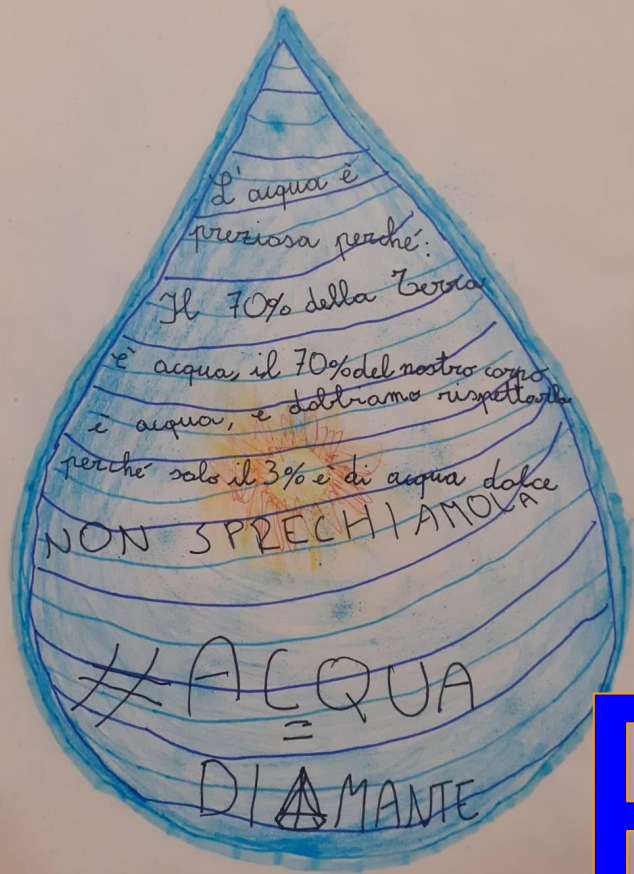 L'acqua è
preziosa perché:
Il 70% della Terra
è acqua, il 70% del nostro corpo
è acqua, e dobbiamo rispettarla
perché solo il 3% è di acqua dolce
NON SPRECHIAMOLA
#ACQUA
=
DIAMANTE